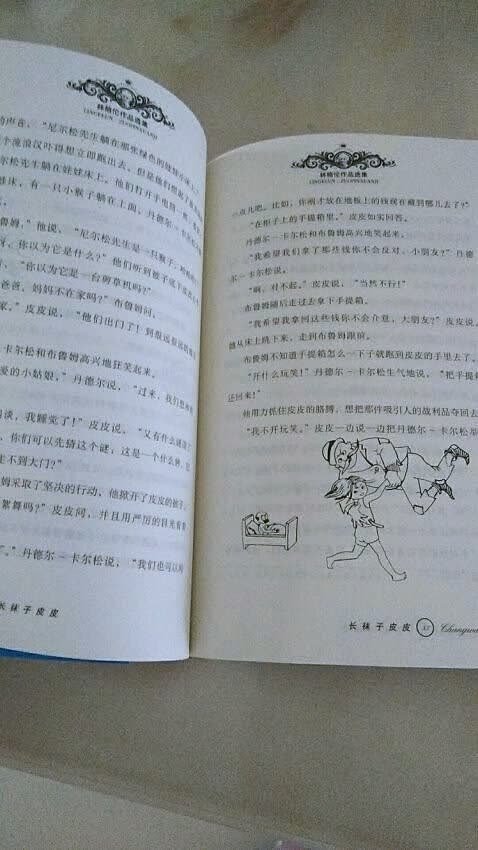 林格伦作品选集
LINGELUN ZUOPINXUANJI
的声音，“尼尔松先生躺在那张绿色的娃娃床上。”
个流浪汉吓得想立即跑出去，但是他们
尔松先生躺在娃娃床上。他们打开手电筒一照，
那张床，有一只小猴子躺在上面，丹德尔
鲁姆。”他说，“尼尔松先生是一只猴子
，你以为它是什么？他们听到被子底下
“你以为它是一台剪草机吗？”
爸爸、妈妈不在家吗？”布鲁姆问。
家。”皮皮说，“他们出门了！到很远很远的
－卡尔松和布鲁姆高兴地狂笑起来。
爱的小姑娘。”丹德尔说，“过来，我们想和你
闲谈，我睡觉了！”皮皮说，“又有什么谜语了
，你们可以先猜这个谜，这是一个什么钟，
走不到大门？”
姆采取了坚决的行动，他掀开了皮皮的被子。
絮舞吗？”皮皮问，并且用严厉的目光看着
了。”丹德尔－卡尔松说，“我们也可以对
长袜子皮皮
林格伦作品选集
LINGELUN ZUOPINXUANJI
一点儿吧。比如，你刚才放在地板上的钱现在藏到哪儿去了？”
“在柜子上的手提箱里，”皮皮如实回答。
丹德尔－卡尔松和布鲁姆高兴地笑起来。
“我希望我们拿了那些钱你不会反对，小朋友？”丹德
尔－卡尔松说。
“啊，对不起。”皮皮说，“当然不行！”
布鲁姆随后走过去拿下手提箱。
“我希望我拿回这些钱你不会介意，大朋友？”皮皮说，
她从床上跳下来，走到布鲁姆跟前。
布鲁姆不知道手提箱怎么一下子就跑到皮皮的手里去了。
“开什么玩笑！”丹德尔－卡尔松生气地说，“把手提箱
还回来！”
他用力抓住皮皮的胳膊，想把那件吸引人的战利品夺回去
“我不开玩笑。”皮皮一边说一边把丹德尔－卡尔松举
长袜子皮皮